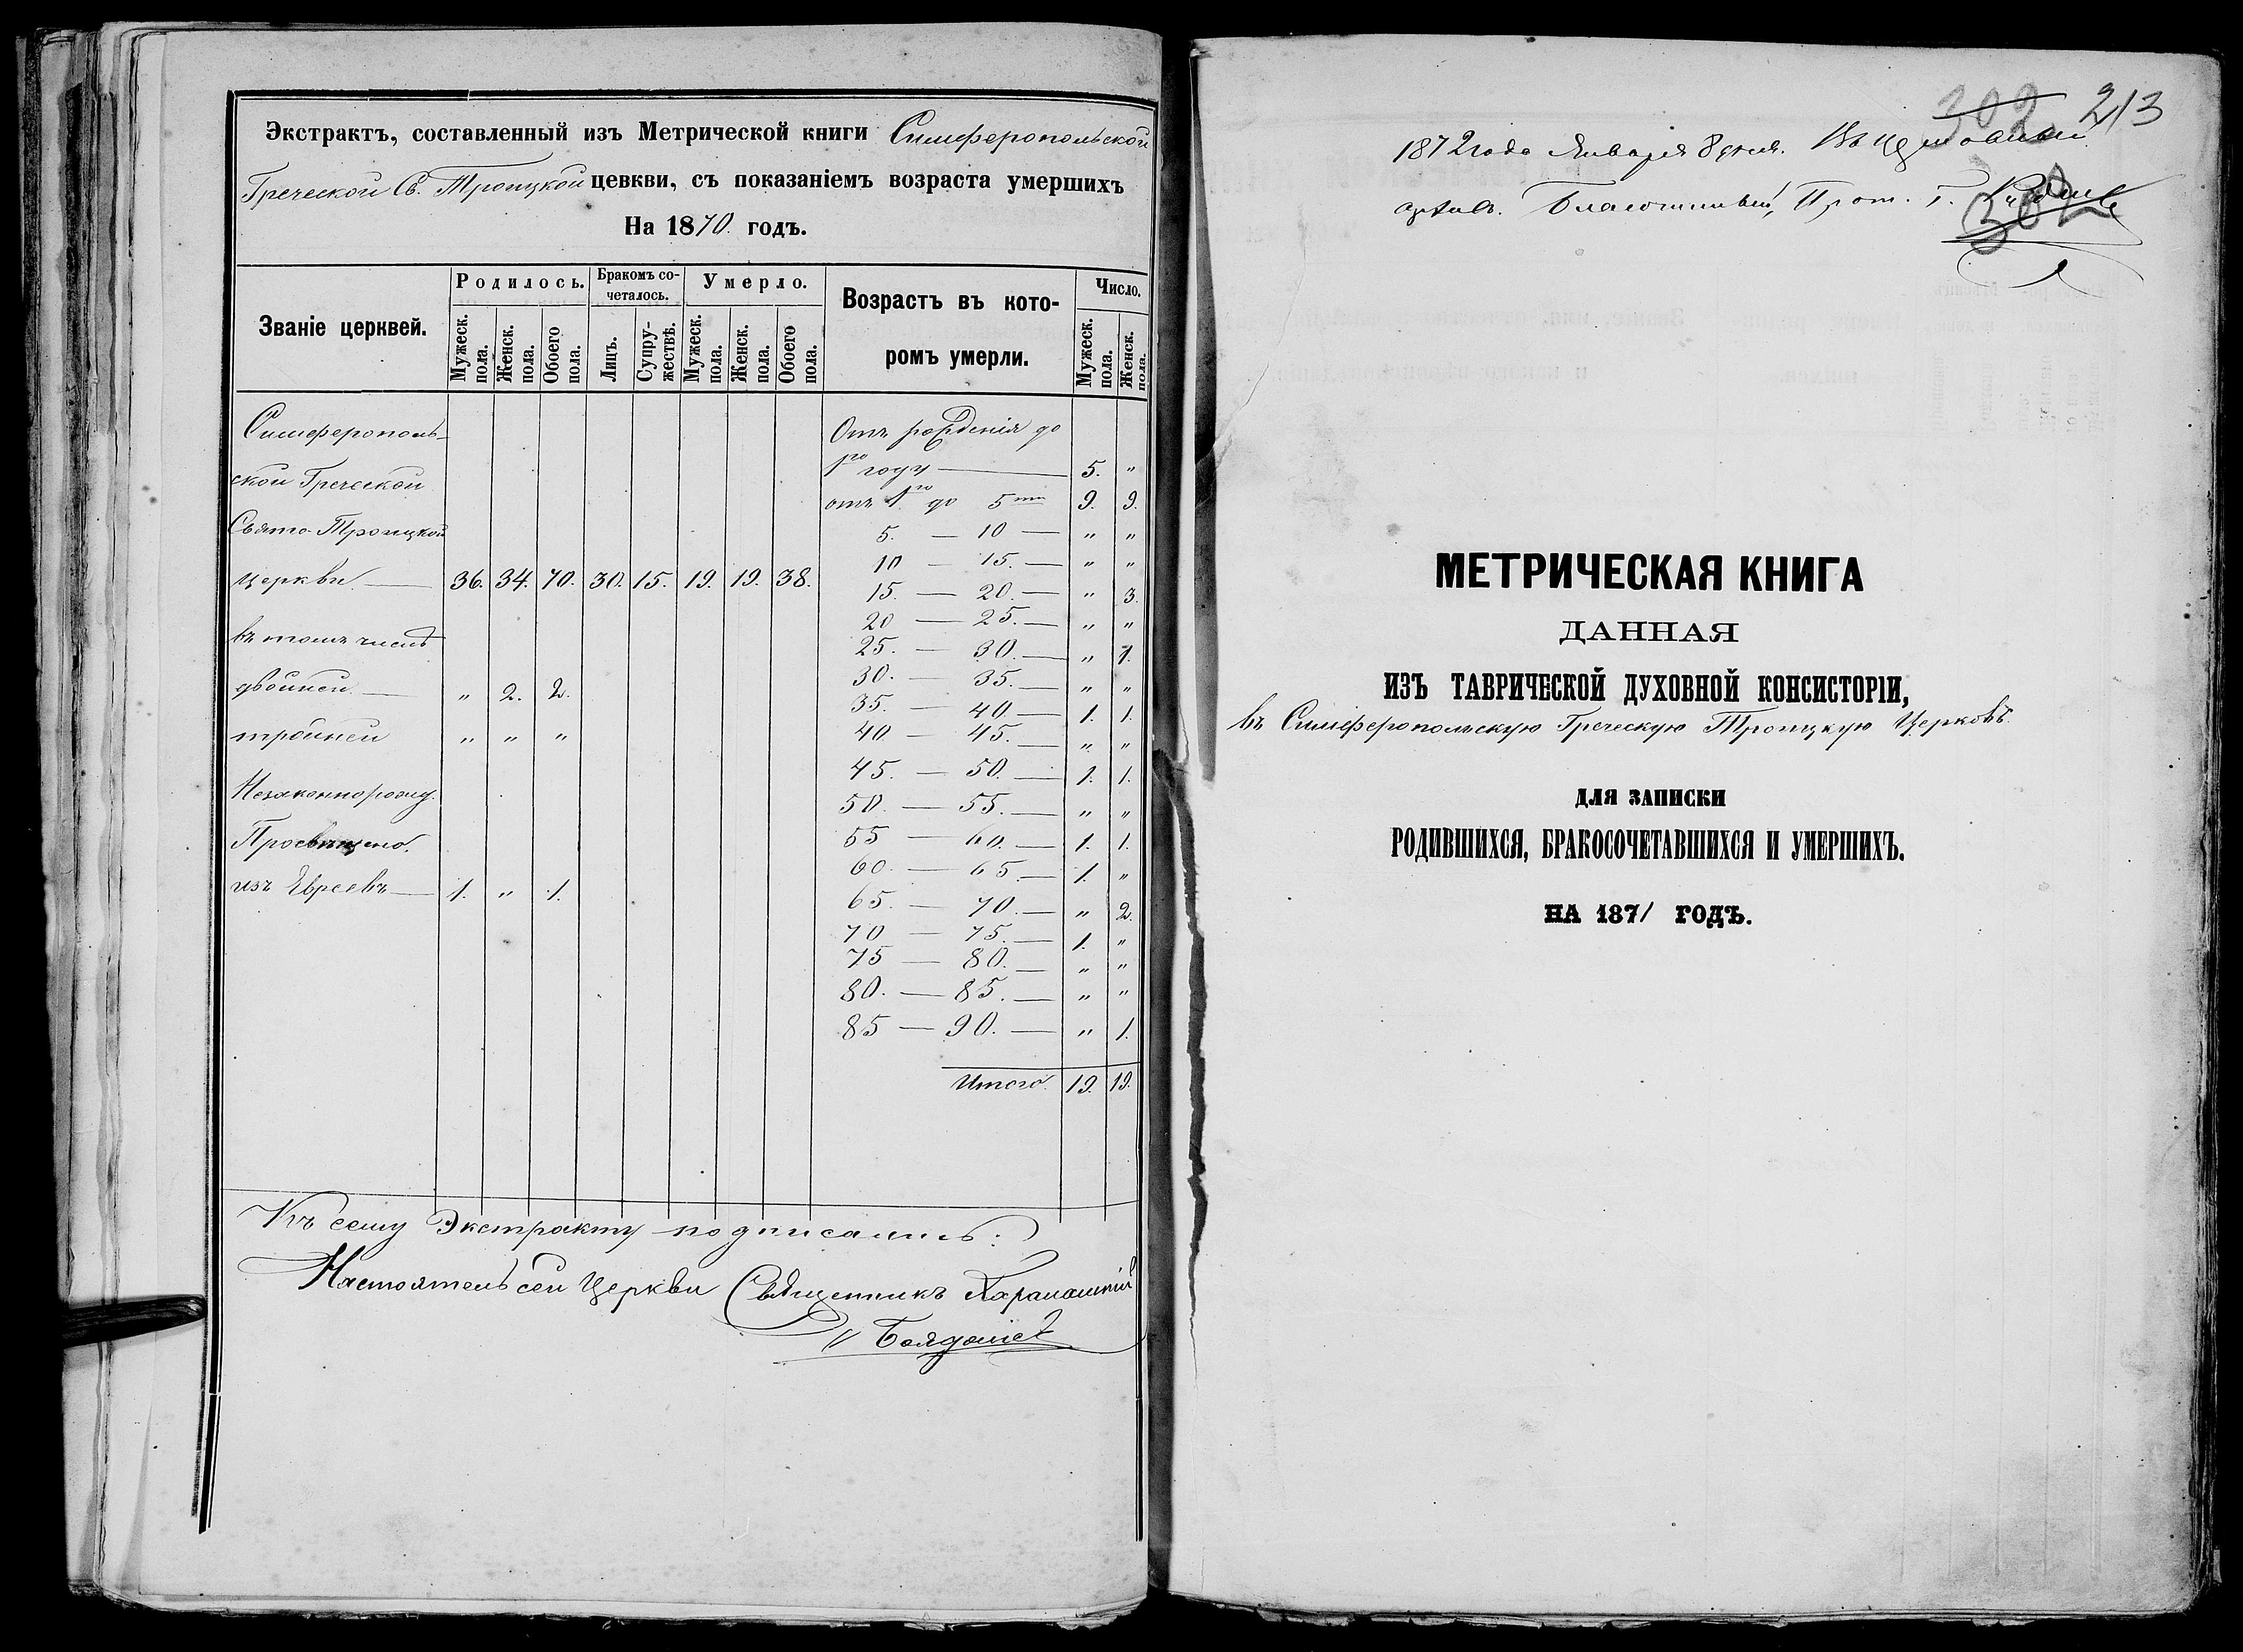 Экстрактъ, составленный изъ Метрической книги Симферопольской
Греческой Св. Троицкой цевкви, съ показаніемъ возраста умершихъ
На 1870. годъ.
Званіе церквей.
Родилось.
Бракомъ со-
четалось.
Умерло.
Возрастъ въ кото-
ромъ умерли.
Число.
Мужеск. пола.
Женск. пола.
Обоего пола.
Лицъ.
Супру-
жествъ.
Мужеск. пола.
Женск. пола.
Обоего пола.
Мужеск. пола.
Женск. пола.
Симферополь-
ской Греческой
Свято-Троицкой
Церкви — 36. 34. 70. 30. 15. 19. 19. 38.
въ томъ числѣ
двойней — " 2. 2.
тройней " " "
Незаконнорожд.
Просвѣщено
изъ Евреевъ — 1. " 1.
Отъ рожденія до
1го году — 5. "
отъ 1го до 5ти 9. 9.
5. — 10 — " "
10 — 15. — " "
15. — 20. — " 3.
20 — 25. — " "
25. — 30. — " 1.
30. — 35. — " "
35. — 40. — 1. 1.
40 — 45. — " "
45. — 50. — 1. 1.
50. — 55. — " "
55 — 60. — 1. 1.
60. — 65. — 1. "
65. — 70. — " 2.
70 — 75. — 1. "
75 — 80. — " "
80. — 85. — " "
85 — 90. — " 1.
Итого. 19. 19.
Къ сему Экстракту подписались:
Настоятель сей Церкви Священникъ Харалампій
302 213
1872 года Января 8 дня. Въ
Благочинный, Прот.
302
МЕТРИЧЕСКАЯ КНИГА
ДАННАЯ
ИЗЪ ТАВРИЧЕСКОЙ ДУХОВНОЙ КОНСИСТОРІИ,
въ Симферопольскую Греческую Троицкую Церковь.
ДЛЯ ЗАПИСКИ
РОДИВШИХСЯ, БРАКОСОЧЕТАВШИХСЯ И УМЕРШИХЪ.
НА 1871 ГОДЪ.